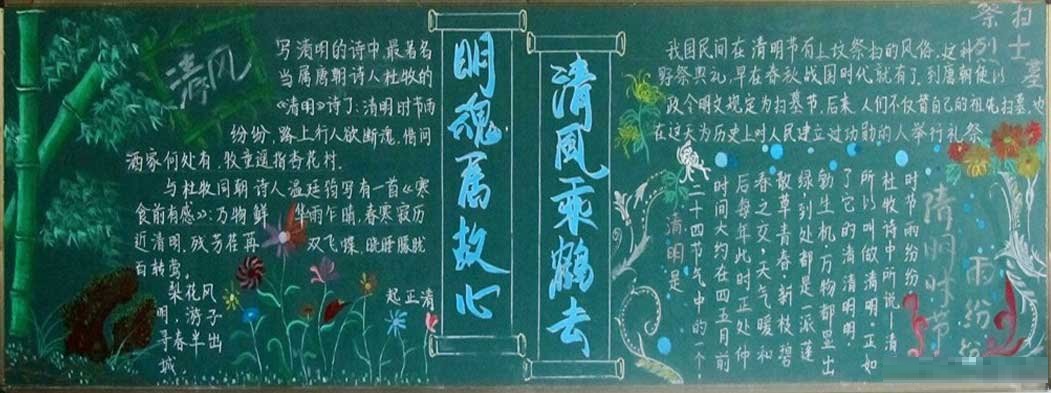 清风
写清明的诗中最著名
当属唐朝诗人杜牧的
《清明》诗了:清明时节雨
纷纷,路上行人欲断魂。借问
酒家何处有,牧童遥指杏花村。
与杜牧同朝诗人温廷筠写有一首《寒
食前有感》:万物鲜华雨乍晴,春寒寂历
近清明。残芳荏苒双飞蝶,晓睡朦胧
百转莺。
梨花风起正清
明,游子
寻春半出
城。
明魂属故心
清风乘鹤去
祭扫烈士墓
我国民间在清明节有上坟祭扫的风俗。这种
野祭典礼,早在春秋战国时代就有了。到唐朝便以
政令明文规定为扫墓节。后来,人们不仅替自己的祖先扫墓,也
在这天为历史上对人民建立过功勋的人举行礼祭
清明是
二十四节气中的一个
时间大约在四五月前
后每年此时正处仲
春之交,天气暖和
散草青春新枝碧
绿到处都是一派蓬
勃生机,万物都显出
了它的清清明明
所以叫做清明。正如
杜牧诗中所说——清
时节雨纷纷
清明时节
雨纷纷